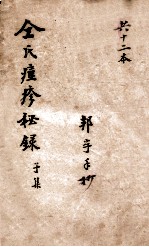 共十二本
邦宇手抄
仝氏痘疹秘録
子集